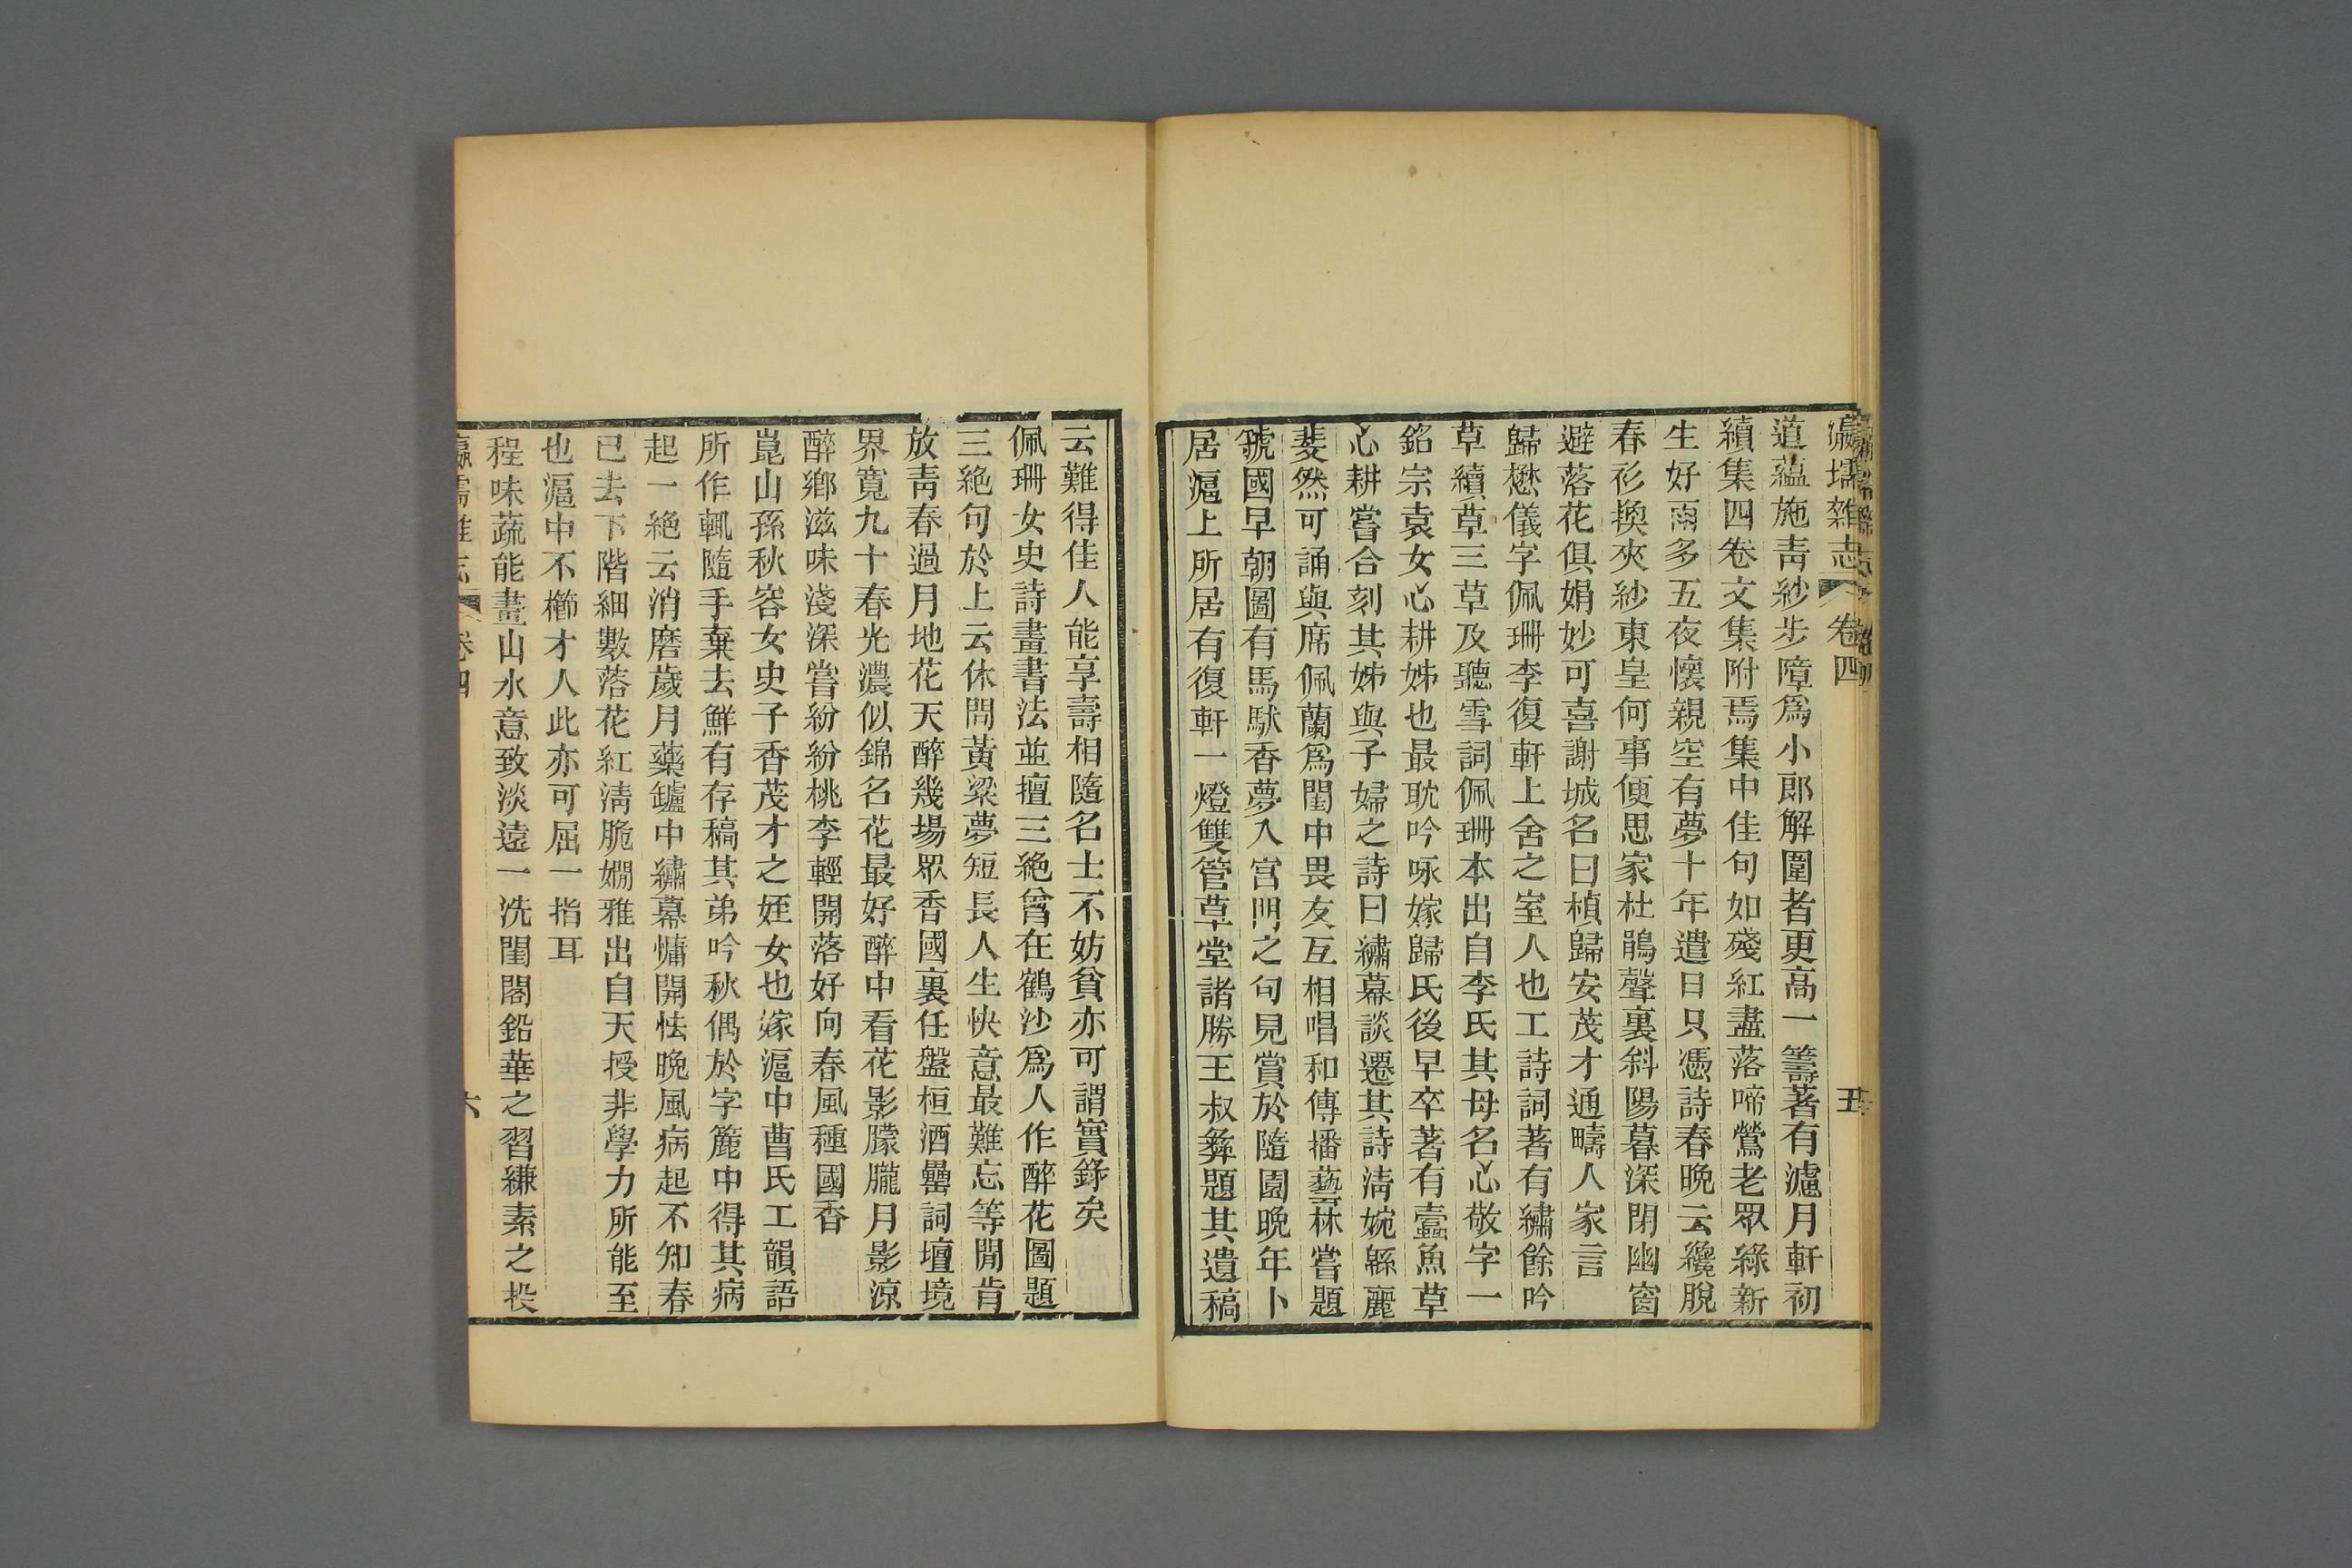 瀛壖雜志 卷四 五
道蘊施青紗步障爲小郎解圍者更高一籌著有濾月軒初
續集四卷文集附焉集中佳句如殘紅盡落啼鶯老眾綠新
生好雨多五夜懷親空有夢十年遣日只憑詩春晚云纔脫
春衫換夾紗東皇何事便思家杜鵑聲裏斜陽暮深閉幽窗
避落花俱娟妙可喜謝城名曰楨歸安茂才通疇人家言
歸懋儀字佩珊李復軒上舍之室人也工詩詞著有繡餘吟
草續草三草及聽雪詞佩珊本出自李氏其母名心敬字一
銘宗袁女心耕姊也最耽吟咏嫁歸氏後早卒著有蠹魚草
心耕嘗合刻其姊與子婦之詩曰繡幕談遷其詩清婉緜麗
斐然可誦與席佩蘭爲閨中畏友互相唱和傳播藝林嘗題
虢國早朝圖有馬馱香夢入宮門之句見賞於隨園晚年卜
居滬上所居有復軒一燈雙管草堂諸勝王叔彝題其遺稿
云難得佳人能享壽相隨名士不妨貧亦可謂實錄矣
佩珊女史詩畫書法並擅三絕曾在鶴沙爲人作醉花圖題
三絕句於上云休問黃粱夢短長人生快意最難忘等閒肯
放青春過月地花天醉幾場眾香國裏任盤桓酒罍詞壇境
界寬九十春光濃似錦名花最好醉中看花影朦朧月影涼
醉鄉滋味淺深嘗紛紛桃李輕開落好向春風種國香
崑山孫秋容女史子香茂才之姪女也嫁滬中曹氏工韻語
所作輒隨手棄去鮮有存稿其弟吟秋偶於字簏中得其病
起一絕云消磨歲月藥鑪中繡幕慵開怯晚風病起不知春
已去下階細數落花紅清脆嫺雅出自天授非學力所能至
也滬中不櫛才人此亦可屈一指耳
程味蔬能畫山水意致淡遠一洗閨閣鉛華之習縑素之投
瀛壖雜志 卷四 六